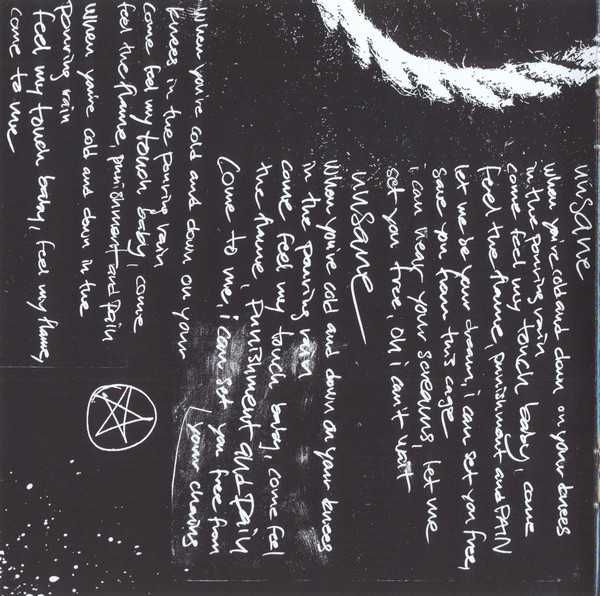 unsane
When you're cold and down on your knees
in the pouring rain
come feel my touch baby, come
feel the flame, punishment and PAIN
let me be your dream, i can set you free,
save you from this cage
i can hear your screams, let me
set you free, oh i can't wait
unsane
When you're cold and down on your knees
in the pouring rain
come feel my touch baby, come feel
the flame, punishment and pain
Come to me, i can set you free from
your chains
When you're cold and down on your
knees in the pouring rain
come feel my touch, baby, come
feel the flame, punishment and pain
When you're cold and down in the
pouring rain
feel my touch baby, feel my flame,
come to me